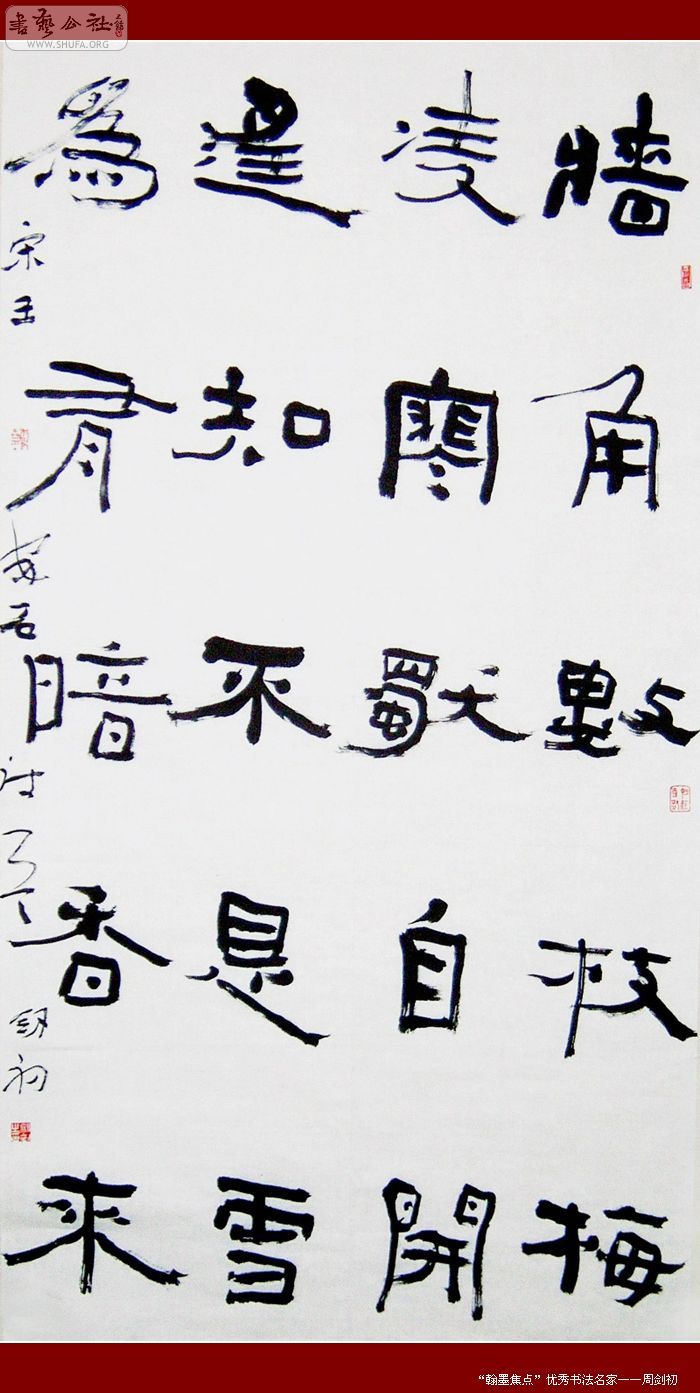 書藝公社
WWW.SHUFA.ORG
牆角數枝梅
凌寒獨自開
遥知不是雪
為有暗香來
宋王安石詩 劍初
“翰墨焦点”优秀书法名家——周剑初